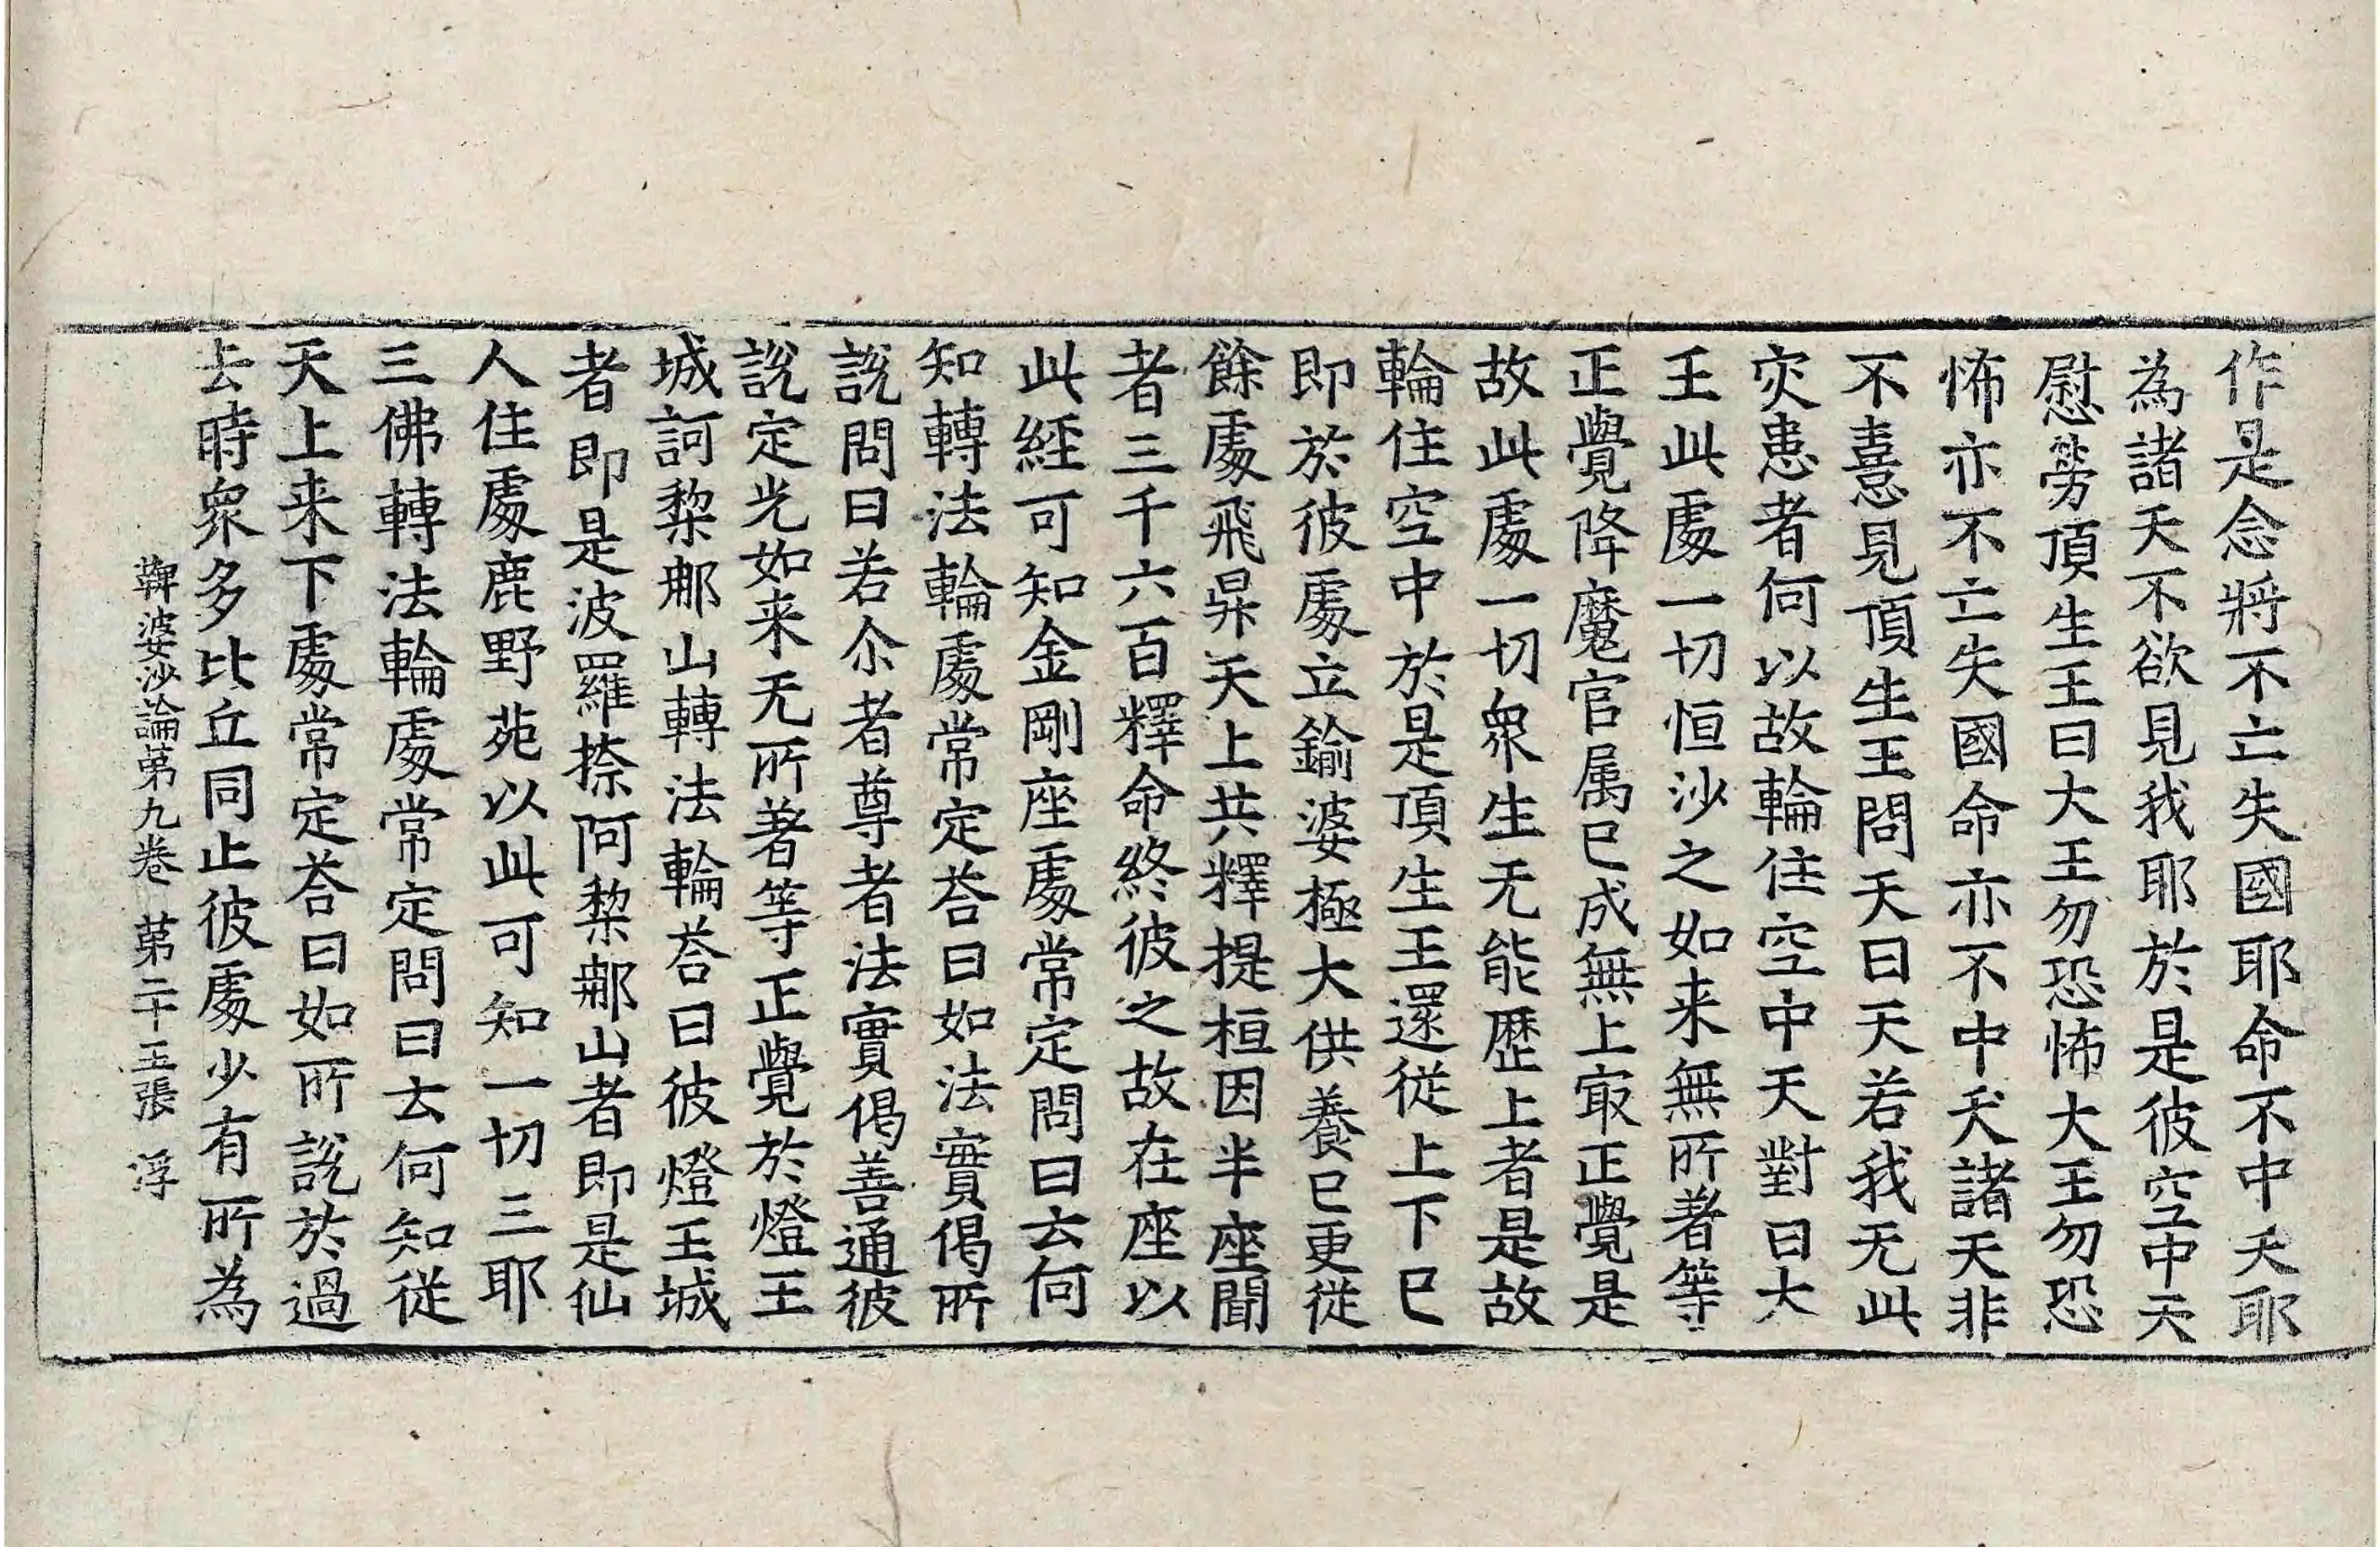 作是念將不亡失國耶命不中夭耶
為諸天不欲見我耶於是彼空中天
慰勞頂生王曰大王勿恐怖大王勿恐
怖亦不亡失國命亦不中夭諸天非
不憙見頂生王問天曰天若我无此
灾患者何以故輪住空中天對曰大
王此處一切恒沙之如来無所著等
正覺降魔官属已成無上㝡正覺是
故此處一切衆生无能歷上者是故
輪住空中於是頂生王還從上下已
即於彼處立鍮婆極大供養已更從
餘處飛昇天上共釋提桓因半座聞
者三千六百釋命終彼之故在座以
此經可知金剛座處常定問曰云何
知轉法輪處常定荅曰如法實偈所
說問曰若尒者尊者法實偈善通彼
說定光如来无所著等正覺於燈王
城訶棃那山轉法輪荅曰彼燈王城
者即是波羅捺阿棃那山者即是仙
人住處鹿野苑以此可知一切三耶
三佛轉法輪處常定問曰云何知從
天上来下處常定荅曰如所說於過
去時衆多比丘同止彼處少有所為
鞞婆沙論第九卷　第二十五張　浮